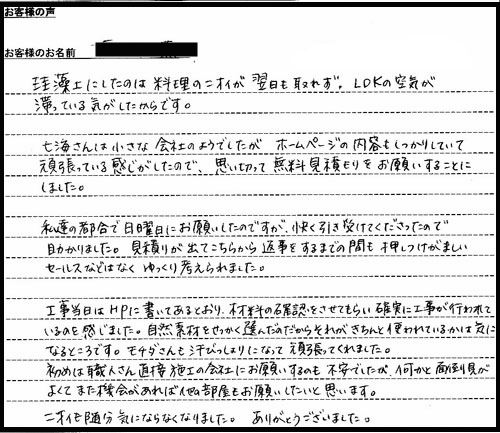 お客様の声
お客様のお名前
珪藻土にしたのは料理のニオイが翌日も取れず、LDKの空気が
滞っている気がしたからです。
七海さんは小さな会社のようでしたが ホームページの内容もしっかりしていて
頑張っている感じがしたので、思い切って無料見積もりをお願いすることに
しました。
私達の都合で日曜日にお願いしたのですが、快く引き受けてくださったので
助かりました。見積りが出てこちらから返事をするまでの間も押しつけがましい
セールスなどはなくゆっくり考えられました。
工事当日はHPに書いてあるとおり、材料の確認をさせてもらい確実に工事が行われて
いるのを感じました。自然素材をせっかく選んだのだからそれがきちんと使われているかは気に
なるところです。モチダさんも汗びっしりになって頑張ってくれました。
初めは職人さん直接施工の会社にお願いするのも不安でしたが、何かと面倒見が
よくてまた機会があれば他の部屋もお願いしたいと思います。
ニオイも随分気にならなくなりました。ありがとうございました。